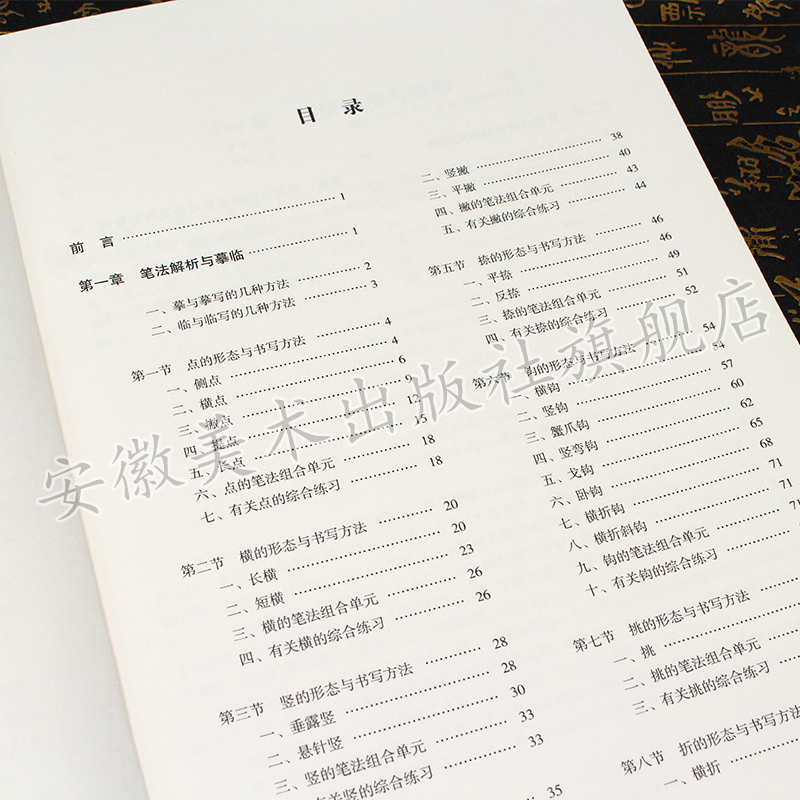 目 录
前 言 1
第一章 笔法解析与摹临 1
一、摹与摹写的几种方法 2
二、临与临写的几种方法 3
第一节 点的形态与书写方法 4
一、侧点 4
二、横点 6
三、撇点 9
四、挑点 12
五、长点 15
六、点的笔法组合单元 18
七、有关点的综合练习 18
第二节 横的形态与书写方法 20
一、长横 20
二、短横 23
三、横的笔法组合单元 26
四、有关横的综合练习 26
第三节 竖的形态与书写方法 28
一、垂露竖 28
二、悬针竖 30
三、竖的笔法组合单元 33
有关竖的综合练习 33
35
二、竖撇 38
三、平撇 40
四、撇的笔法组合单元 43
五、有关撇的综合练习 44
第五节 捺的形态与书写方法 46
一、平捺 46
二、反捺 49
三、捺的笔法组合单元 51
四、有关捺的综合练习 52
第六节 钩的形态与书写方法 54
一、横钩 54
二、竖钩 57
三、蟹爪钩 60
四、竖弯钩 62
五、戈钩 65
六、卧钩 68
七、横折钩 71
八、横折斜钩 71
九、钩的笔法组合单元
十、有关钩的综合练习
第七节 挑的形态与书写方法
一、挑
二、挑的笔法组合单元
三、有关挑的综合练习
第八节 折的形态与书写方法
一、横折
安徽美术出版社旗舰店